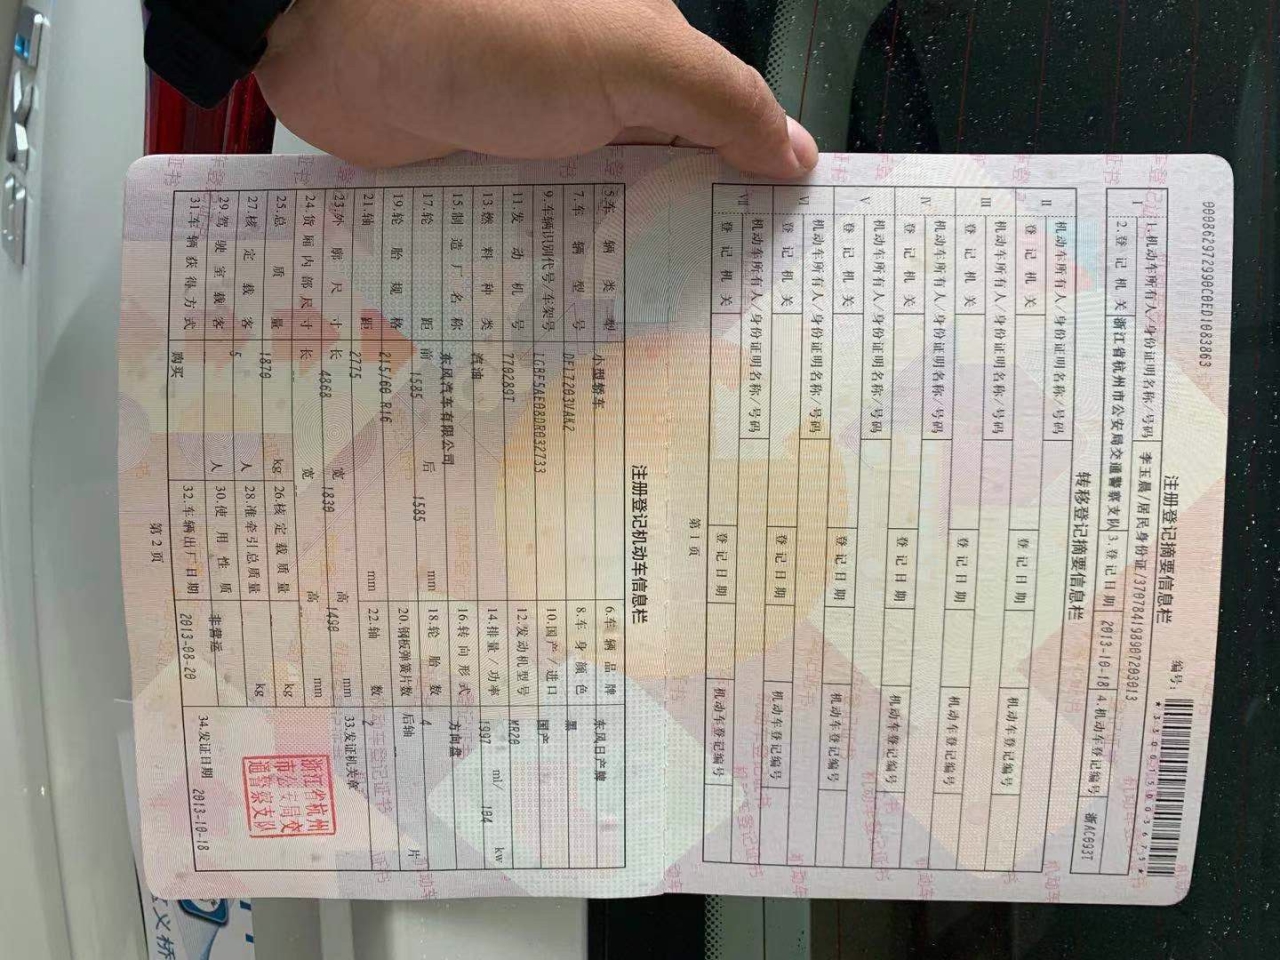 000862972990C0ED1083863
注册登记摘要信息栏
编号:
I 1.机动车所有人/身份证明名称/号码 李玉晨/居民身份证/370784198907203013
2.登记机关 浙江省杭州市公安局交通警察支队 3.登记日期 2013-10-18 4.机动车登记编号 浙AC093T
转移登记摘要信息栏
II 机动车所有人/身份证明名称/号码
登记机关 登记日期 机动车登记编号
III 机动车所有人/身份证明名称/号码
登记机关 登记日期 机动车登记编号
IV 机动车所有人/身份证明名称/号码
登记机关 登记日期 机动车登记编号
V 机动车所有人/身份证明名称/号码
登记机关 登记日期 机动车登记编号
VI 机动车所有人/身份证明名称/号码
登记机关 登记日期 机动车登记编号
VII 机动车所有人/身份证明名称/号码
登记机关 登记日期 机动车登记编号
第1页
注册登记机动车信息栏
5.车辆类型 小型轿车 6.车辆品牌 东风日产牌
7.车辆型号 DFL7203VAK2 8.车身颜色 黑
9.车辆识别代号/车架号 LGBF5AE08DR032733 10.国产/进口 国产
11.发动机号 770289T 12.发动机型号 MR20
13.燃料种类 汽油 14.排量/功率 1997 ml/ 104 kw
15.制造厂名称 东风汽车有限公司 16.转向形式 方向盘
17.轮距 前 1585 后 1585 mm 18.轮胎数 4
19.轮胎规格 215/60 R16 20.钢板弹簧片数 后轴 片
21.轴距 2775 mm 22.轴数 2
23.外廓尺寸 长 4868 宽 1830 高 1490 mm 33.发证机关章
24.货厢内部尺寸 长 宽 高 mm
浙江省杭州市公安局交通警察支队
25.总质量 1870 kg 26.核定载质量 kg
27.核定载客 5 人 28.准牵引总质量 kg
29.驾驶室载客 人 30.使用性质 非营运
31.车辆获得方式 购买 32.车辆出厂日期 2013-08-20 34.发证日期 2013-10-18
第2页
义桥